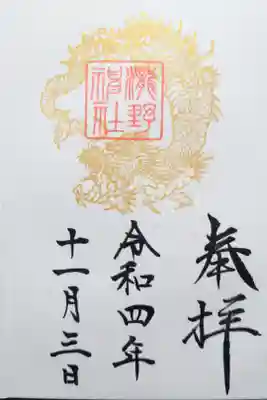 奉拝
野
神社
令和四年
十一月三日